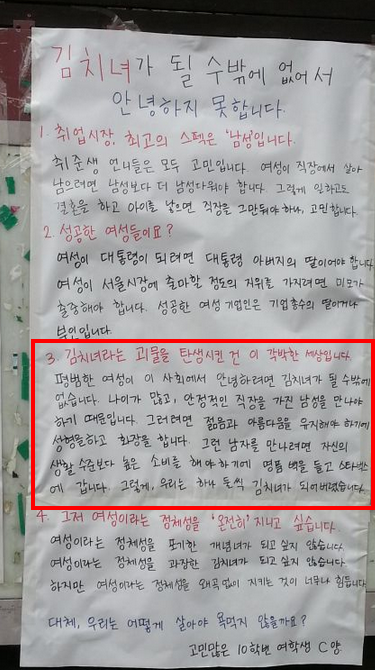 김치녀가 될 수밖에 없어서
안녕하지 못합니다.
1. 취업시장, 최고의 스펙은 '남성'입니다.
취준생 언니들은 모두 고민입니다. 여성이 직장에서 살아
남으려면 남성보다 더 남성다워야 합니다. 그렇게 일하고도
결혼을 하고 아이를 낳으면 직장을 그만둬야하나, 고민합니다.
2. 성공한 여성들이요?
여성이 대통령이 되려면 대통령 아버지의 딸이어야 합니다.
여성이 서울시장에 출마할 정도의 지위를 가지려면 미모가
출중해야 합니다. 성공한 여성 기업인은 기업총수의 딸이거나
부인입니다.
3. 김치녀라는 괴물을 탄생시킨 건 이 각박한 세상입니다.
평범한 여성이 이 사회에서 안녕하려면 김치녀가 될 수밖에
없습니다. 나이가 많고, 안정적인 직장을 가진 남성을 만나야
하기 때문입니다. 그러려면 젊음과 아름다움을 유지해야 하기에
성형을하고 화장을 합니다. 그런 남자를 만나려면 자신의
생활 수준보다 높은 소비를 해야하기에 명품 백을 들고 스타벅스
에 갑니다. 그렇게, 우리는 하나 둘씩 김치녀가 되어버렸습니다.
4. 그저 여성이라는 정체성을 '온전히' 지니고 싶습니다.
여성이라는 정체성을 포기한 개념녀가 되고 싶지 않습니다.
여성이라는 정체성을 과장한 김치녀가 되고 싶지 않습니다.
하지만 여성이라는 정체성을 왜곡 없이 지키는 것이 너무나 힘듭니다.
대체, 우리는 어떻게 살아야 욕먹지 않을까요?
고민많은 10학번 여학생 C양